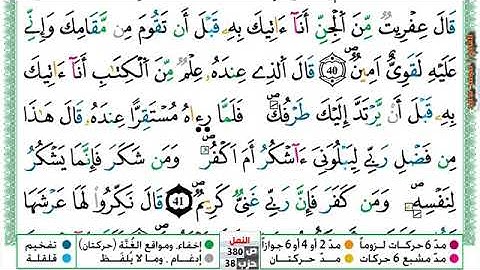 قَالَ عِفْرِيتٌ مِّنَ اَ۬لْجِنِّ أَنَآ ءَاتِيكَ بِهِۦ قَبْلَ أَن تَقُومَ مِن مَّقَامِكَ وَإِنِّے
عَلَيْهِ لَقَوِيٌّ اَمِينٌ 40 قَالَ اَ۬لذِے عِندَهُۥ عِلْمٌ مِّنَ اَ۬لْكِتَٰبِ أَنَآ ءَاتِيكَ
بِهِۦ قَبْلَ أَنْ يَّرْتَدَّ إِلَيْكَ طَرْفُكَ فَلَمَّا رَءِاهُ مُسْتَقِرّاً عِندَهُۥ قَالَ هَٰذَا
مِن فَضْلِ رَبِّے لِيَبْلُوَنِيَ ءَآشْكُرُ أَمَ اَكْفُرُ وَمَن شَكَرَ فَإِنَّمَا يَشْكُرُ
لِنَفْسِهِۦ وَمَن كَفَرَ فَإِنَّ رَبِّے غَنِيٌّ كَرِيمٌ 41 قَالَ نَكِّرُواْ لَهَا عَرْشَهَا
مدّ 6 حركات لزوماً مدّ 2 أو 4 أو 6 جوازاً النمل إخفاء، ومواقع الغُنَّة (حركتان) تفخيم
مدّ مشبع 6 حركات مدّ حركتان ص 380 حزب 38 إدغام ، وما لا يُلفَظ قلقلة